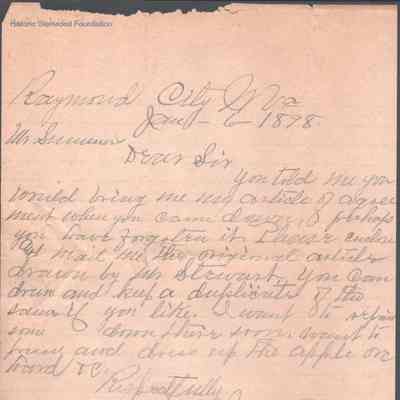 Historic Glenwood Foundation
Raymond City W Va
Jan - 6 1878.
Mr. Sumner
Dear Sir
You told me you
would bring me my article of agree
ment when you came down, & perhaps
you have forgotten it. Please
& mail me the original article
drawn by Mr Stewart. You can
draw and keep a duplicate of the
same if you like. I want to
some down there soon. want to
and dress up the apple or
&C
Respectfully